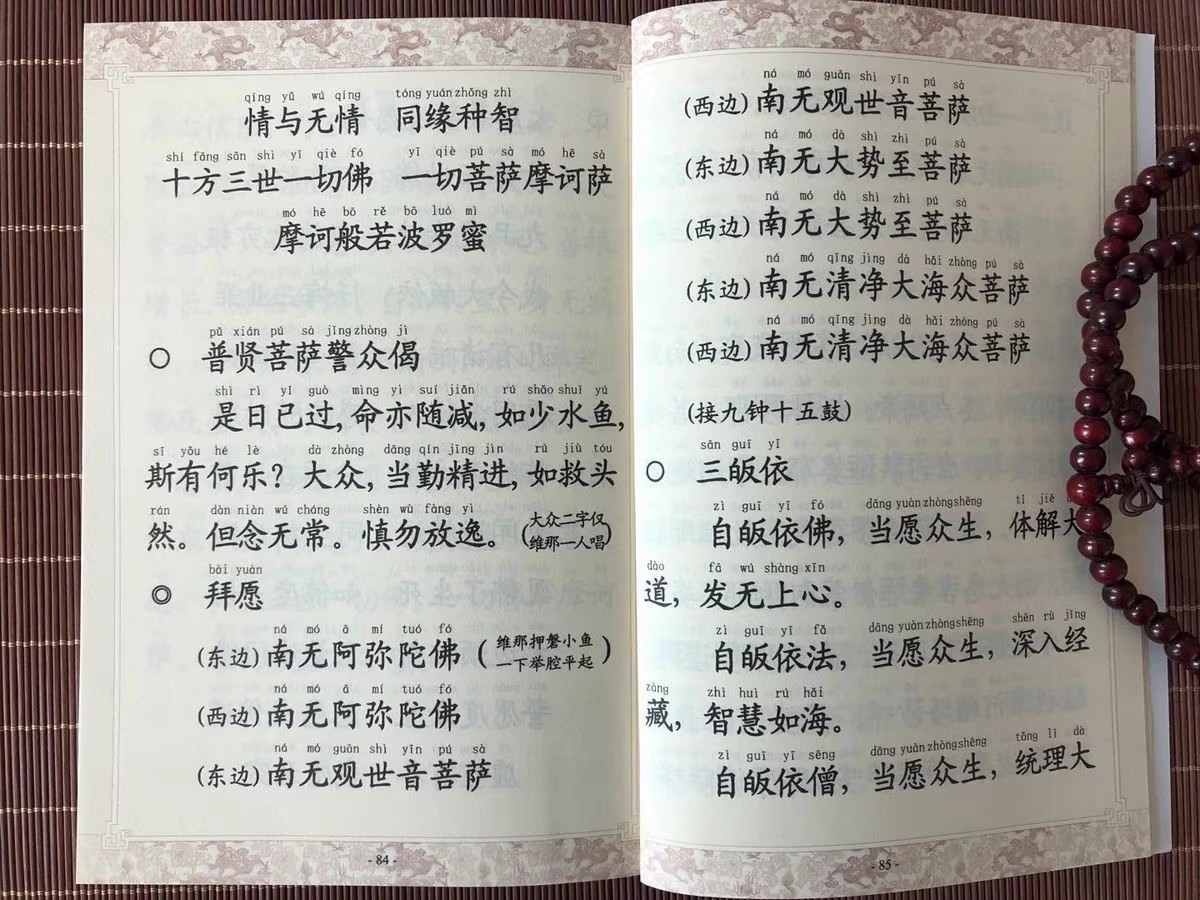 qíng yǔ wú qíng tóng yuán zhǒng zhì
情与无情 同缘种智
shí fāng sān shì yī qiè fó yī qiè pú sà mó hē sà
十方三世一切佛 一切菩萨摩诃萨
mó hē bō rě bō luó mì
摩诃般若波罗蜜
pǔ xián pú sà jǐng zhòng jì
○ 普贤菩萨警众偈
shì rì yǐ guò mìng yì suí jiǎn rú shǎo shuǐ yú
是日已过, 命亦随减, 如少水鱼,
sī yǒu hé lè dà zhòng dāng qín jīng jìn rú jiù tóu
斯有何乐? 大众, 当勤精进, 如救头
rán dàn niàn wú cháng shèn wù fàng yì
然。但念无常。慎勿放逸。(大众二字仅
维那一人唱)
bài yuàn
◎ 拜愿
ná mó ā mí tuó fó
(东边) 南无阿弥陀佛 (维那押磬小鱼
一下举腔平起)
ná mó ā mí tuó fó
(西边) 南无阿弥陀佛
ná mó guān shì yīn pú sà
(东边) 南无观世音菩萨
- 84 -
ná mó guān shì yīn pú sà
(西边) 南无观世音菩萨
ná mó dà shì zhì pú sà
(东边) 南无大势至菩萨
ná mó dà shì zhì pú sà
(西边) 南无大势至菩萨
ná mó qīng jìng dà hǎi zhòng pú sà
(东边) 南无清净大海众菩萨
ná mó qīng jìng dà hǎi zhòng pú sà
(西边) 南无清净大海众菩萨
(接九钟十五鼓)
sān guī yī
○ 三皈依
zì guī yī fó dāng yuàn zhòng shēng tǐ jiě
自皈依佛, 当愿众生, 体解大
dào fā wú shàng xīn
道, 发无上心。
zì guī yī fǎ dāng yuàn zhòng shēng shēn rù jīng
自皈依法, 当愿众生, 深入经
zàng zhì huì rú hǎi
藏, 智慧如海。
zì guī yī sēng dāng yuàn zhòng shēng tǒng lǐ dà
自皈依僧, 当愿众生, 统理大
- 85 -